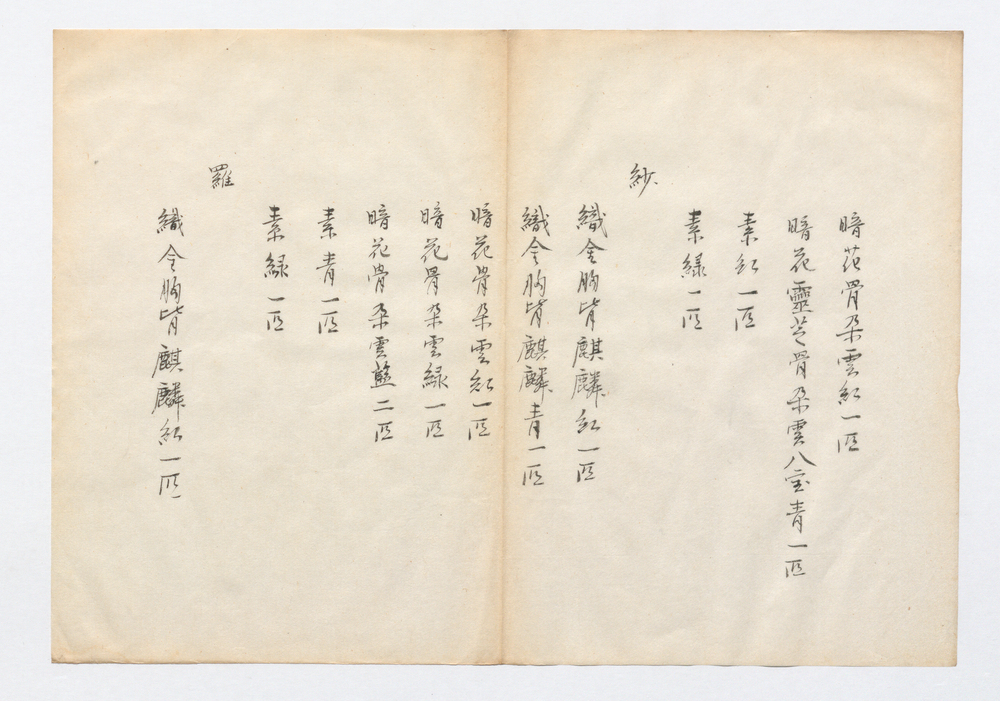 暗花骨朶雲紅一匹
暗花靈芝骨朶雲八宝青一匹
素紅一匹
素緑一匹
紗
織金胸背麒麟紅一匹
織金胸背麒麟青一匹
暗花骨朶雲紅一匹
暗花骨朶雲緑一匹
暗花骨朶雲藍二匹
素青一匹
素緑一匹
羅
織金胸背麒麟紅一匹